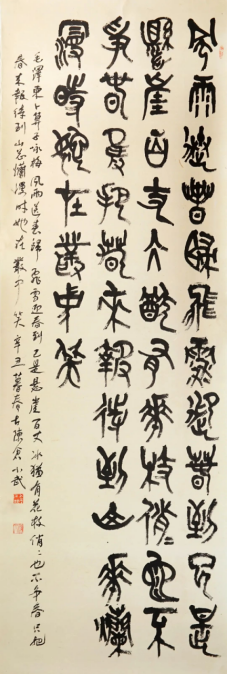 風雨送春歸飛雪迎春到已是
懸崖百丈冰猶有花枝俏〻也不
爭春只把春來報待到山花爛
漫時她在叢中笑
毛澤東卜算子咏梅風雨送春歸飛雪迎春到已是懸崖百丈冰猶有花枝俏〻也不爭春只把
春來報待到山花爛漫時她在叢中笑辛丑暮春古陳倉小武